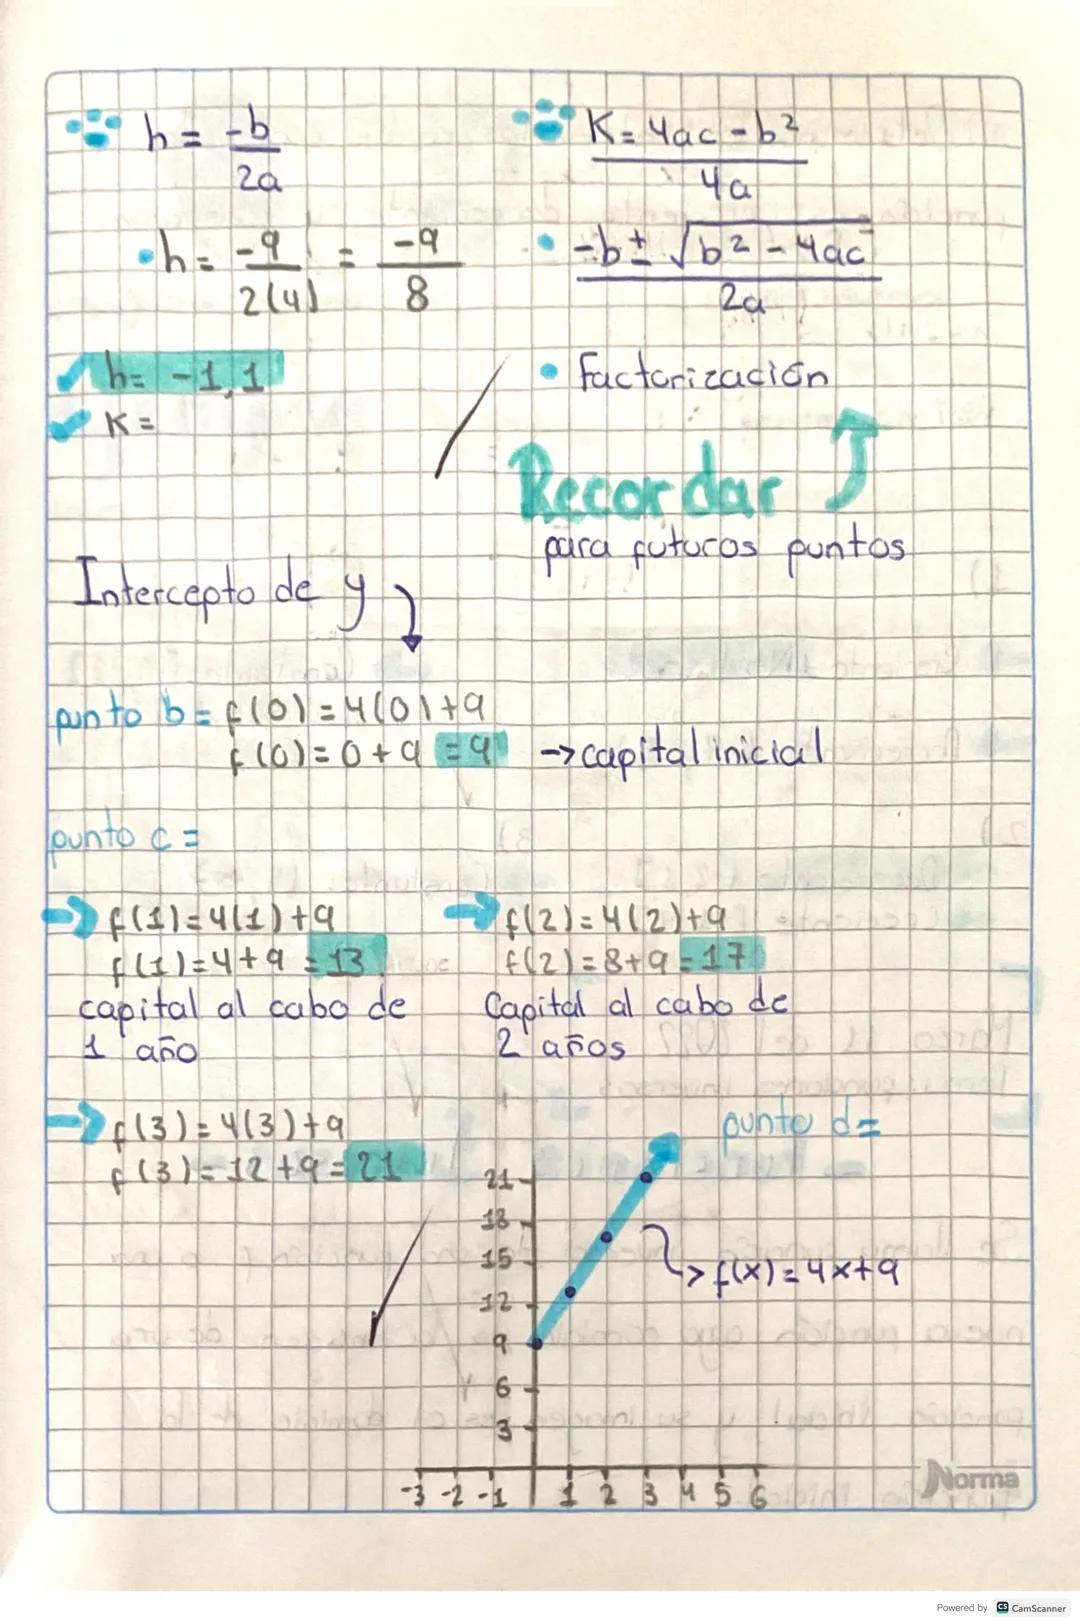 h = -b / 2a
K = 4ac - b² / 4a
• h = -9 / 2(4) = -9 / 8
• -b ± √b² - 4ac / 2a
h = -1,1
• factorización
K =
Recordar
para futuros puntos
Intercepto de y
punto b = f(0) = 4(0) + 9
f(0) = 0 + 9 = 9 -> capital inicial
punto c =
f(1) = 4(1) + 9
f(1) = 4 + 9 = 13
capital al cabo de
1 año
f(2) = 4(2) + 9
f(2) = 8 + 9 = 17
Capital al cabo de
2 años
f(3) = 4(3) + 9
f(3) = 12 + 9 = 21
punto d =
21
18
15
-> f(x) = 4x + 9
12
9
6
3
-3 -2 -1 1 2 3 4 5 6
Norma
Powered by CS CamScanner